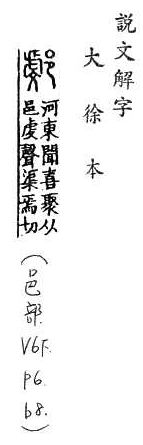 説文解字
大徐本
河東聞喜聚从
邑虔聲渠焉切
(邑部. V6下. P6. b8.)